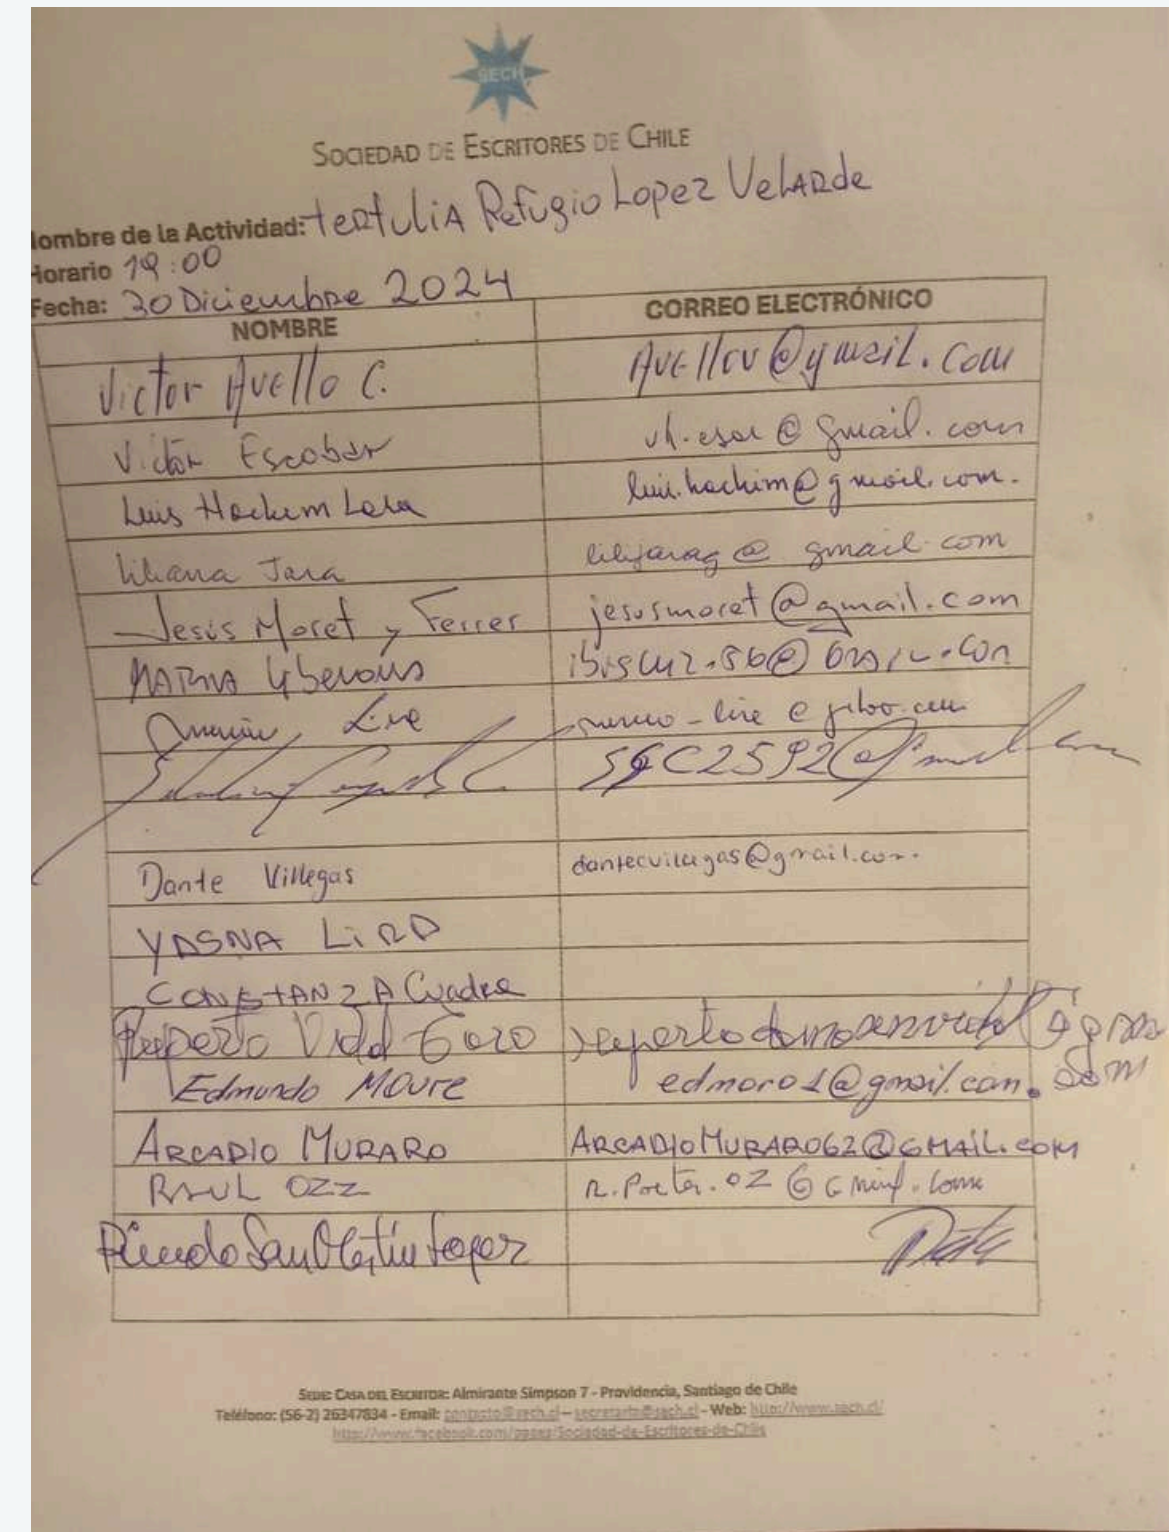 SECH
SOCIEDAD DE ESCRITORES DE CHILE
ombre de la Actividad: tertuliA Refugio Lopez VelARde
Horario 19:00
Fecha: 30 Diciembre 2024
NOMBRE CORREO ELECTRÓNICO
Victor Avello C. Avellov@gmail.com
Victor Escobar @ gmail.com
Luis Hachim Lara luis.hachim@gmail.com.
Liliana Jara lilijarag@ gmail.com
Jesús Moret y Ferrer jesusmoret@gmail.com
MARINA
Lira
SGC2592@gmail.com
Dante Villegas dantecvillegas@gmail.com.
YASNA LiRA
CONSTANZA Cuadra
Ruperto Vidal
Edmundo Moure edmoro1@gmail.com.
ARCADIO MURARO ARCADIOMURARO62@GMAiL.COM
RAUL OZZ
San Martín López
SEDE: CASA DEL ESCRITOR: Almirante Simpson 7 - Providencia, Santiago de Chile
Teléfono: (56-2) 26347834 - Email: contacto@sech.cl – secretaria@sech.cl - Web: http://www.sech.cl/
http://www.facebook.com/pages/Sociedad-de-Escritores-de-Chile